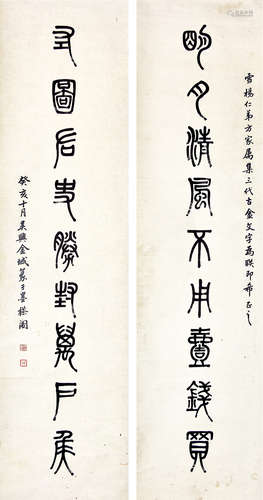 雪楊仁弟方家屬集三代古金文字為聯即希正之
明月清風不用壹錢買
左圖右史勝封萬戶侯
癸亥十月吳興金城篆于墨茶閣